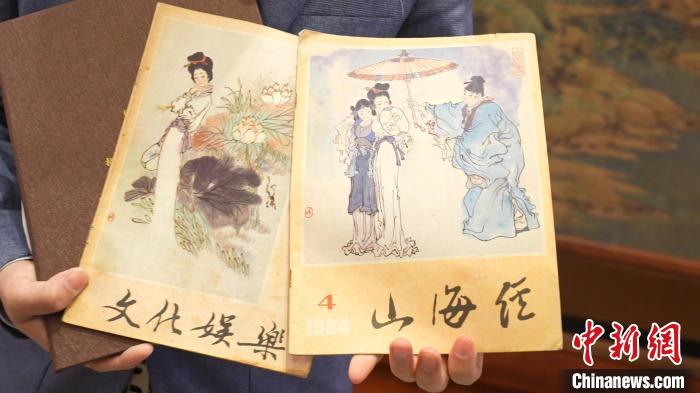 文化娱樂
4
1984
山海经
中新网
Chinanews.com